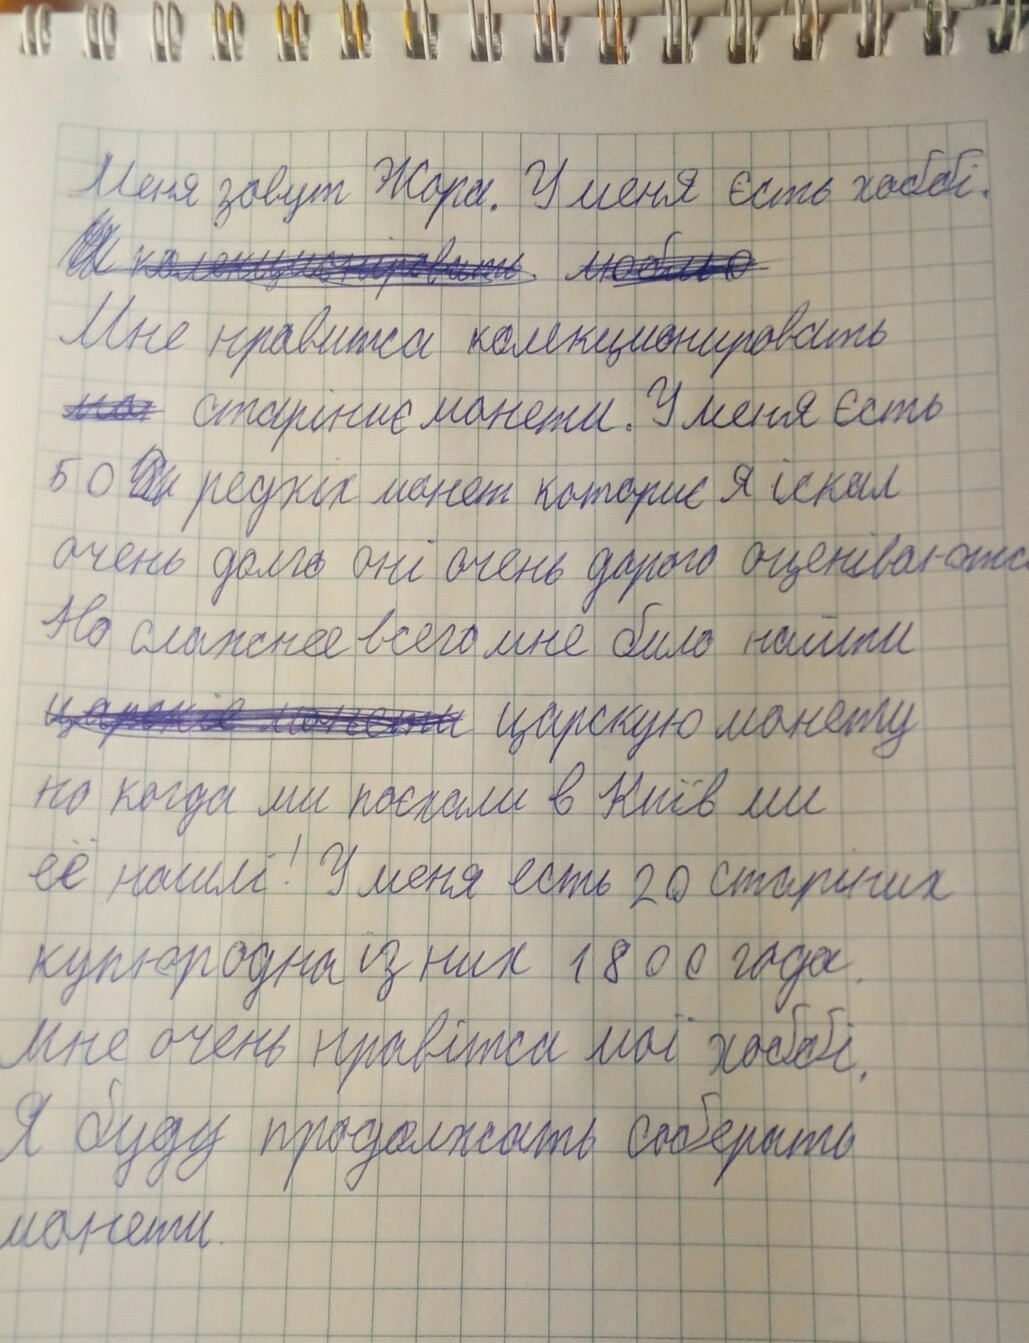 Меня зовут Жора. У меня єсть хоббі.
Мне нравитса колекционировать
старіниє монети. У меня Єсть
50 редкіх монет которие Я іскал
очень долго оні очень дорого оценіваютса
Но сложнее всего мне било найти
царскую монету
но когда ми поєхали в Київ ми
её нашлі! У меня есть 20 старіних
купюродна із них 1800 года.
Мне очень нравітса мої хоббі.
Я буду продолжать соберать
монети.